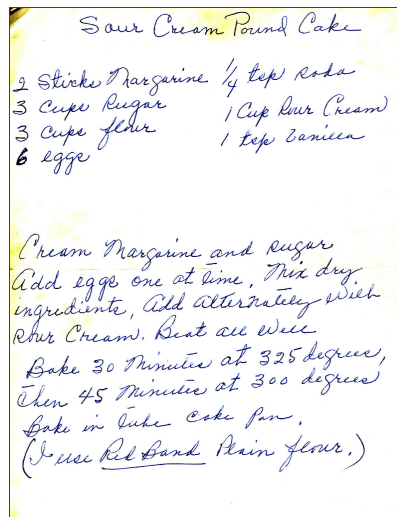 Sour Cream Pound Cake
2 Sticks Margarine 1/4 tsp soda
3 Cups Sugar 1 Cup Sour Cream
3 Cups flour 1 tsp Vanilla
6 eggs
Cream Margarine and sugar
Add eggs one at time, Mix dry
ingredients, Add Alternately with
Sour Cream. Beat all well
Bake 30 Minutes at 325 degrees,
then 45 Minutes at 300 degrees
Bake in tube cake pan.
(I use Red Band Plain flour.)